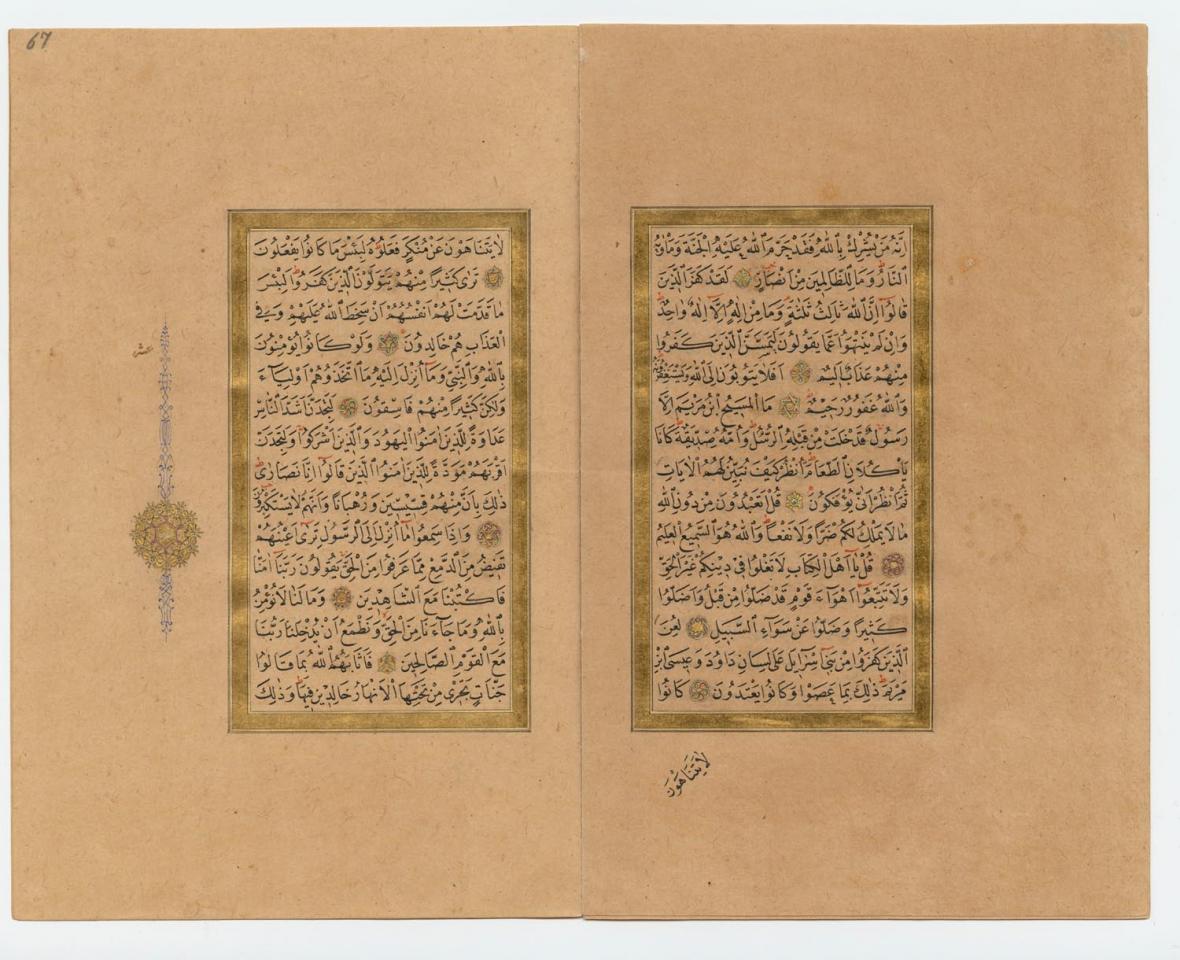 اِنَّهُ مَنْ يُشْرِكْ بِاللّٰهِ فَقَدْ حَرَّمَ اللّٰهُ عَلَيْهِ الْجَنَّةَ وَمَأْوٰيهُ
النَّارُ وَمَا لِلظَّالِمِينَ مِنْ اَنْصَارٍ لَقَدْ كَفَرَ الَّذِينَ
قَالُوا اِنَّ اللّٰهَ ثَالِثُ ثَلٰثَةٍ وَمَا مِنْ اِلٰهٍ اِلَّا اِلٰهٌ وَاحِدٌ
وَاِنْ لَمْ يَنْتَهُوا عَمَّا يَقُولُونَ لَيَمَسَّنَّ الَّذِينَ كَفَرُوا
مِنْهُمْ عَذَابٌ اَلِيمٌ اَفَلَا يَتُوبُونَ اِلَى اللّٰهِ وَيَسْتَغْفِرُونَهُ
وَاللّٰهُ غَفُورٌ رَحِيمٌ مَا الْمَسِيحُ ابْنُ مَرْيَمَ اِلَّا
رَسُولٌ قَدْ خَلَتْ مِنْ قَبْلِهِ الرُّسُلُ وَاُمُّهُ صِدِّيقَةٌ كَانَا
يَأْكُلَانِ الطَّعَامَ اُنْظُرْ كَيْفَ نُبَيِّنُ لَهُمُ الْاٰيَاتِ
ثُمَّ انْظُرْ اَنّٰى يُؤْفَكُونَ قُلْ اَتَعْبُدُونَ مِنْ دُونِ اللّٰهِ
مَا لَا يَمْلِكُ لَكُمْ ضَرًّا وَلَا نَفْعًا وَاللّٰهُ هُوَ السَّمِيعُ الْعَلِيمُ
قُلْ يَا اَهْلَ الْكِتَابِ لَا تَغْلُوا فِي دِينِكُمْ غَيْرَ الْحَقِّ
وَلَا تَتَّبِعُوا اَهْوَاءَ قَوْمٍ قَدْ ضَلُّوا مِنْ قَبْلُ وَاَضَلُّوا
كَثِيرًا وَضَلُّوا عَنْ سَوَاءِ السَّبِيلِ لُعِنَ
الَّذِينَ كَفَرُوا مِنْ بَنِي اِسْرَائِلَ عَلٰى لِسَانِ دَاوُدَ وَعِيسَى ابْنِ
مَرْيَمَ ذٰلِكَ بِمَا عَصَوْا وَكَانُوا يَعْتَدُونَ كَانُوا
لَا يَتَنَاهَوْنَ
67
لَا يَتَنَاهَوْنَ عَنْ مُنْكَرٍ فَعَلُوهُ لَبِئْسَ مَا كَانُوا يَفْعَلُونَ
تَرٰى كَثِيرًا مِنْهُمْ يَتَوَلَّوْنَ الَّذِينَ كَفَرُوا لَبِئْسَ
مَا قَدَّمَتْ لَهُمْ اَنْفُسُهُمْ اَنْ سَخِطَ اللّٰهُ عَلَيْهِمْ وَفِي
الْعَذَابِ هُمْ خَالِدُونَ وَلَوْ كَانُوا يُؤْمِنُونَ
بِاللّٰهِ وَالنَّبِيِّ وَمَا اُنْزِلَ اِلَيْهِ مَا اتَّخَذُوهُمْ اَوْلِيَاءَ
وَلٰكِنَّ كَثِيرًا مِنْهُمْ فَاسِقُونَ لَتَجِدَنَّ اَشَدَّ النَّاسِ
عَدَاوَةً لِلَّذِينَ اٰمَنُوا الْيَهُودَ وَالَّذِينَ اَشْرَكُوا وَلَتَجِدَنَّ
اَقْرَبَهُمْ مَوَدَّةً لِلَّذِينَ اٰمَنُوا الَّذِينَ قَالُوا اِنَّا نَصَارٰى
ذٰلِكَ بِاَنَّ مِنْهُمْ قِسِّيسِينَ وَرُهْبَانًا وَاَنَّهُمْ لَا يَسْتَكْبِرُونَ
وَاِذَا سَمِعُوا مَا اُنْزِلَ اِلَى الرَّسُولِ تَرٰى اَعْيُنَهُمْ
تَفِيضُ مِنَ الدَّمْعِ مِمَّا عَرَفُوا مِنَ الْحَقِّ يَقُولُونَ رَبَّنَا اٰمَنَّا
فَاكْتُبْنَا مَعَ الشَّاهِدِينَ وَمَا لَنَا لَا نُؤْمِنُ
بِاللّٰهِ وَمَا جَاءَنَا مِنَ الْحَقِّ وَنَطْمَعُ اَنْ يُدْخِلَنَا رَبُّنَا
مَعَ الْقَوْمِ الصَّالِحِينَ فَاَثَابَهُمُ اللّٰهُ بِمَا قَالُوا
جَنَّاتٍ تَجْرِي مِنْ تَحْتِهَا الْاَنْهَارُ خَالِدِينَ فِيهَا وَذٰلِكَ
عشر